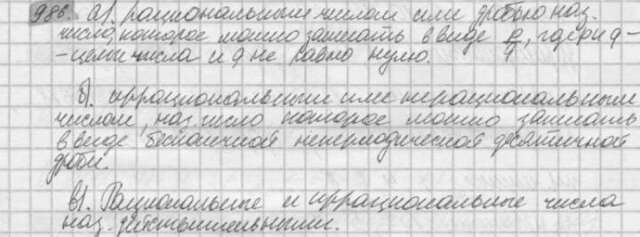 986. а). рациональным числом или дробью наз.
число, которое можно записать в виде p/q, где p и q -
- целые числа и q не равно нулю.
б). иррациональным или нерациональным
числом, наз. число которое можно записать
в виде бесконечной непериодической десятичной
дроби.
в). Рациональные и иррациональные числа
наз. действительными.